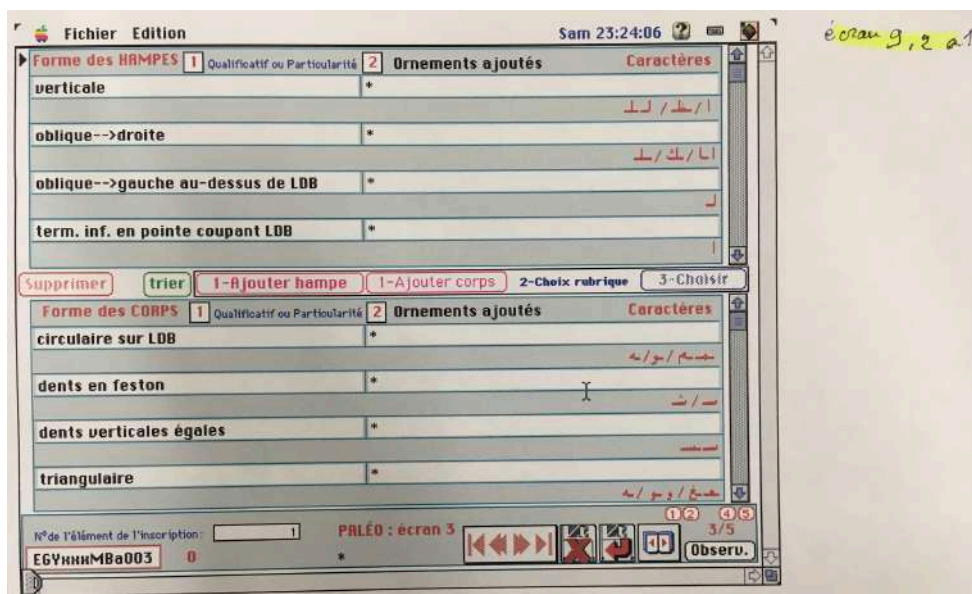 Fichier Edition Sam 23:24:06
écran 9, 2 a1
Forme des HAMPES 1 Qualificatif ou Particularité 2 Ornements ajoutés Caractères
verticale *
oblique-->droite *
oblique-->gauche au-dessus de LDB *
term. inf. en pointe coupant LDB *
Supprimer trier 1-Ajouter hampe 1-Ajouter corps 2-Choix rubrique 3-Choisir
Forme des CORPS 1 Qualificatif ou Particularité 2 Ornements ajoutés Caractères
circulaire sur LDB *
dents en feston *
dents verticales égales *
triangulaire *
1 2 4 5
N° de l'élément de l'inscription: 1 PALÉO : écran 3 3/5
EGYxxxMBa003 0 * Observ.